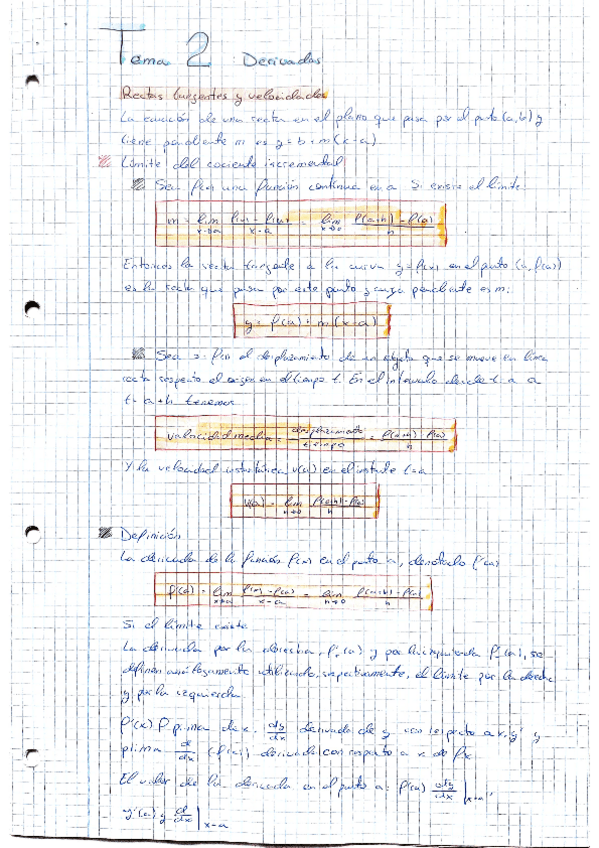 Tema 2 Derivadas
Rectas tangentes y velocidades
La ecuación de una recta en el plano que pasa por el punto (a,b) y
tiene pendiente m es y = b + m(x-a)
Límite del cociente incremental
Sea f(x) una función continua en a Si existe el límite
m = lim x→a f(x) - f(a) / x-a = lim f(a+h) - f(a) / h
Entonces la recta tangente a la curva y = f(x) en el punto (a, f(a))
es la recta que pasa por este punto y cuya pendiente es m:
y = f(a) + m(x-a)
Sea s = f(t) el desplazamiento de un objeto que se mueve en línea
recta respecto el origen en el tiempo t. En el intervalo desde t = a a
t = a+h tenemos
velocidad media = desplazamiento / tiempo = f(a+h) - f(a) / h
Y la velocidad instantánea v(a) en el instante t=a
v(a) = lim h→0 f(a+h) - f(a) / h
Definición
La derivada de la función f(x) en el punto a, denotado f'(a)
f'(a) = lim x→a f(x) - f(a) / x-a = lim h→0 f(a+h) - f(a) / h
Si el límite existe
La derivada por la derecha, f'₊(a) y por la izquierda f'₋(a), se
definen análogamente utilizando, respectivamente, el límite por la derecha
y por la izquierda.
f'(x) f prima de x. dy/dx derivada de y con respecto a x. y' y
prima d/dx (f(x)) derivada con respecto a x de fx
El valor de la derivada en el punto a: f'(a) dy/dx |x=a,
y'(a) y d/dx |x=a